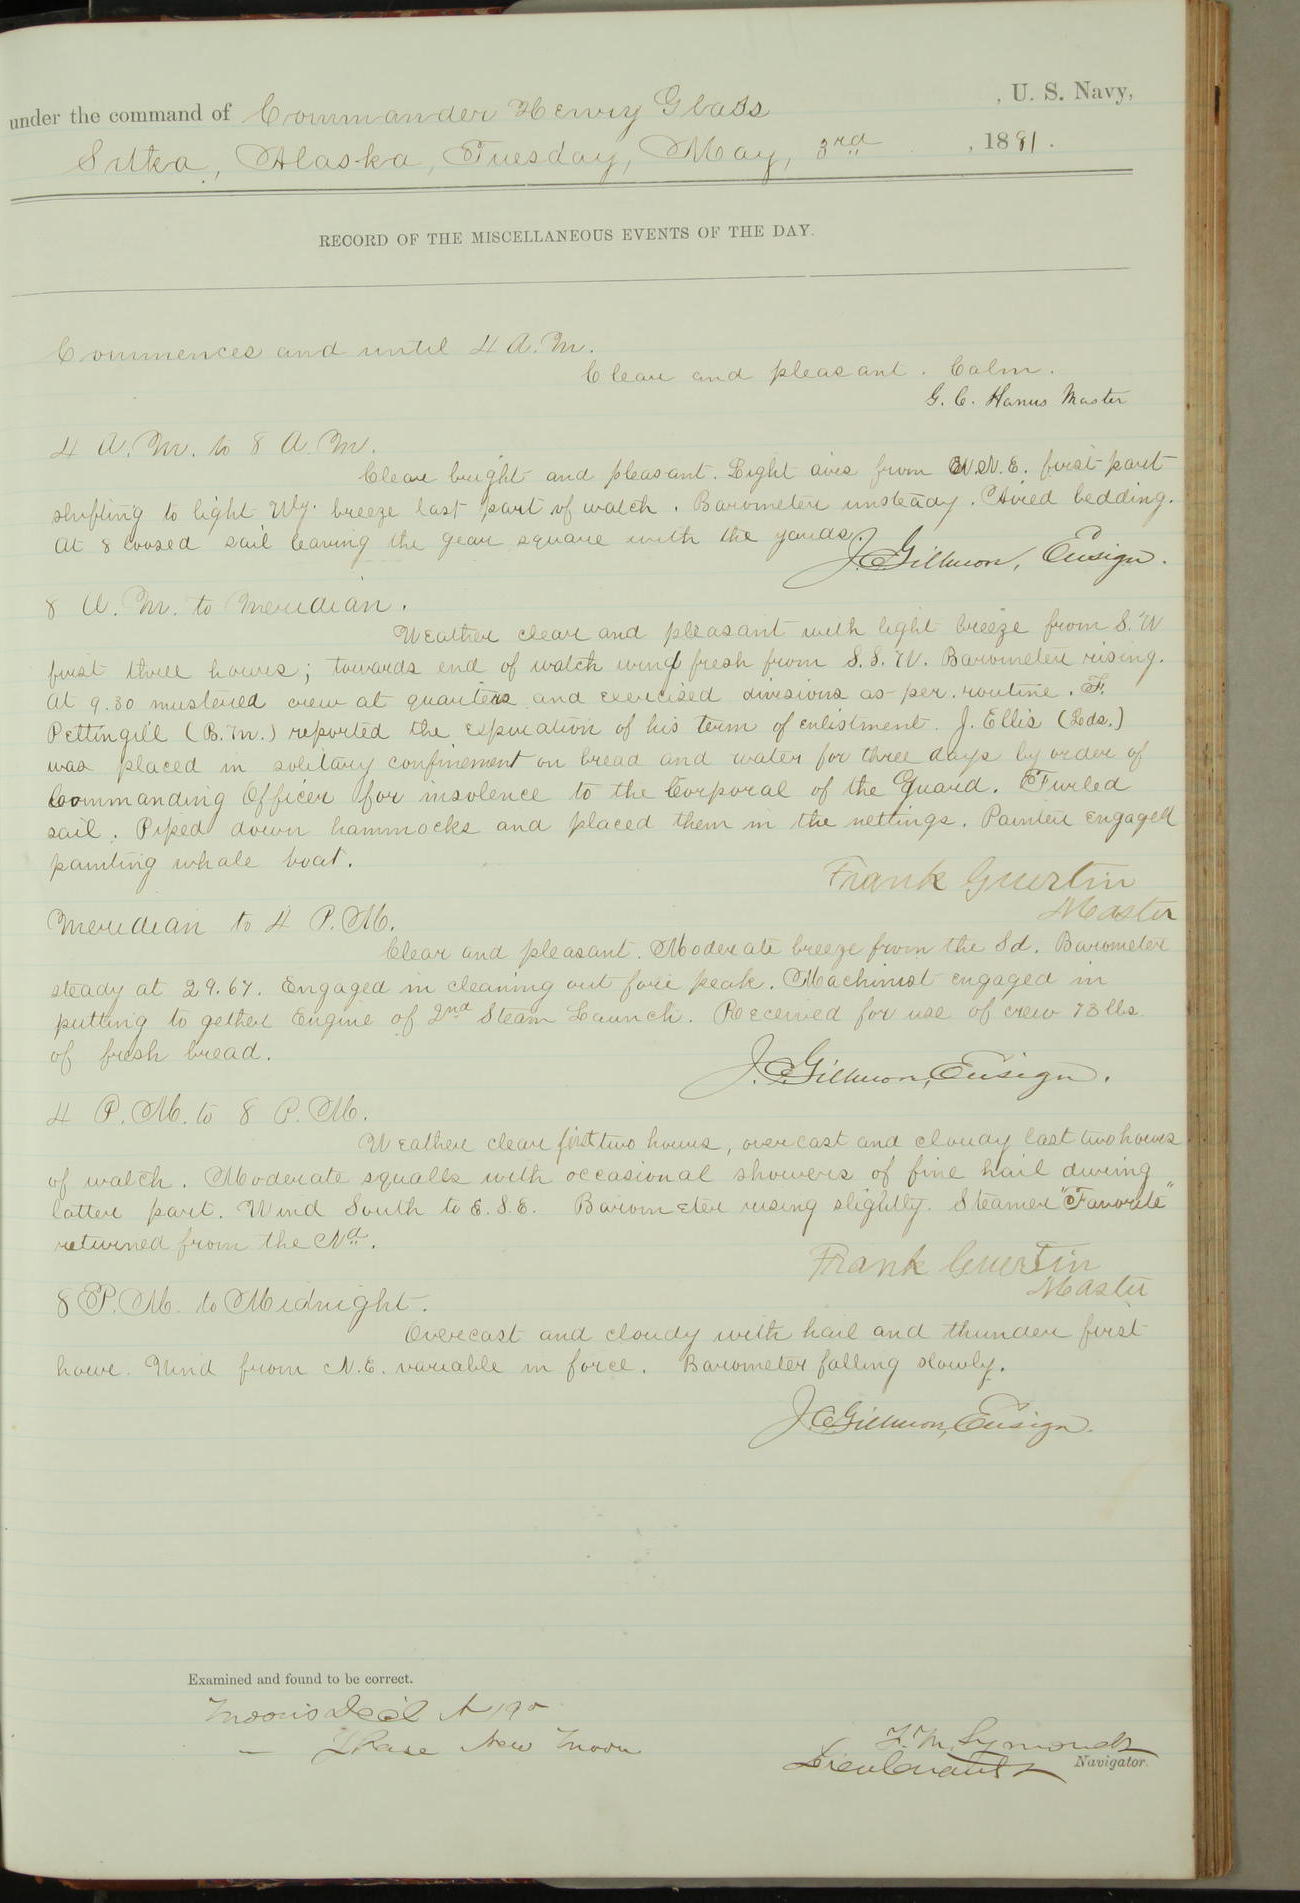 under the command of Commander Henry Glass , U. S. Navy,
Sitka, Alaska, Tuesday, May, 3rd , 1881.
RECORD OF THE MISCELLANEOUS EVENTS OF THE DAY.
Commences and until 4 A.M.
Clear and pleasant. Calm.
G. C. Hanus Master
4 A.M. to 8 A.M.
Clear bright and pleasant. Light airs from N.E. first part
shifting to light Wly. breeze last part of watch. Barometer unsteady. Aired bedding.
At 8 loosed sail leaving the gear square with the yards.
J. C. Gillmore, Ensign.
8 A.M. to Meridian.
Weather clear and pleasant with light breeze from S.W
first three hours; towards end of watch wind fresh from S.S.W. Barometer rising.
At 9.30 mustered crew at quarters and exercised divisions as per routine. F.
Pettingill (B.M.) reported the expiration of his term of enlistment. J. Ellis (Lds.)
was placed in solitary confinement on bread and water for three days by order of
Commanding Officer for insolence to the Corporal of the Guard. Furled
sail. Piped down hammocks and placed them in the nettings. Painter engaged
painting whale boat.
Frank Guertin
Master
Meridian to 4 P.M.
Clear and pleasant. Moderate breeze from the Sd. Barometer
steady at 29.67. Engaged in cleaning out fore peak. Machinist engaged in
putting to gether Engine of 2nd Steam Launch. Received for use of crew 73 lbs
of fresh bread.
J. C. Gillmore, Ensign.
4 P.M. to 8 P.M.
Weather clear first two hours, overcast and cloudy last two hours
of watch. Moderate squalls with occasional showers of fine hail during
latter part. Wind South to E.S.E. Barometer rising slightly. Steamer "Favorite"
returned from the Nd.
Frank Guertin
Master
8 P.M. to Midnight.
Overcast and cloudy with hail and thunder first
hour. Wind from N.E. variable in force. Barometer falling slowly.
J. C. Gillmore, Ensign.
Examined and found to be correct.
Moon's Decl N 19°
— Phase New Moon
F. M. Symonds
Lieutenant Navigator.